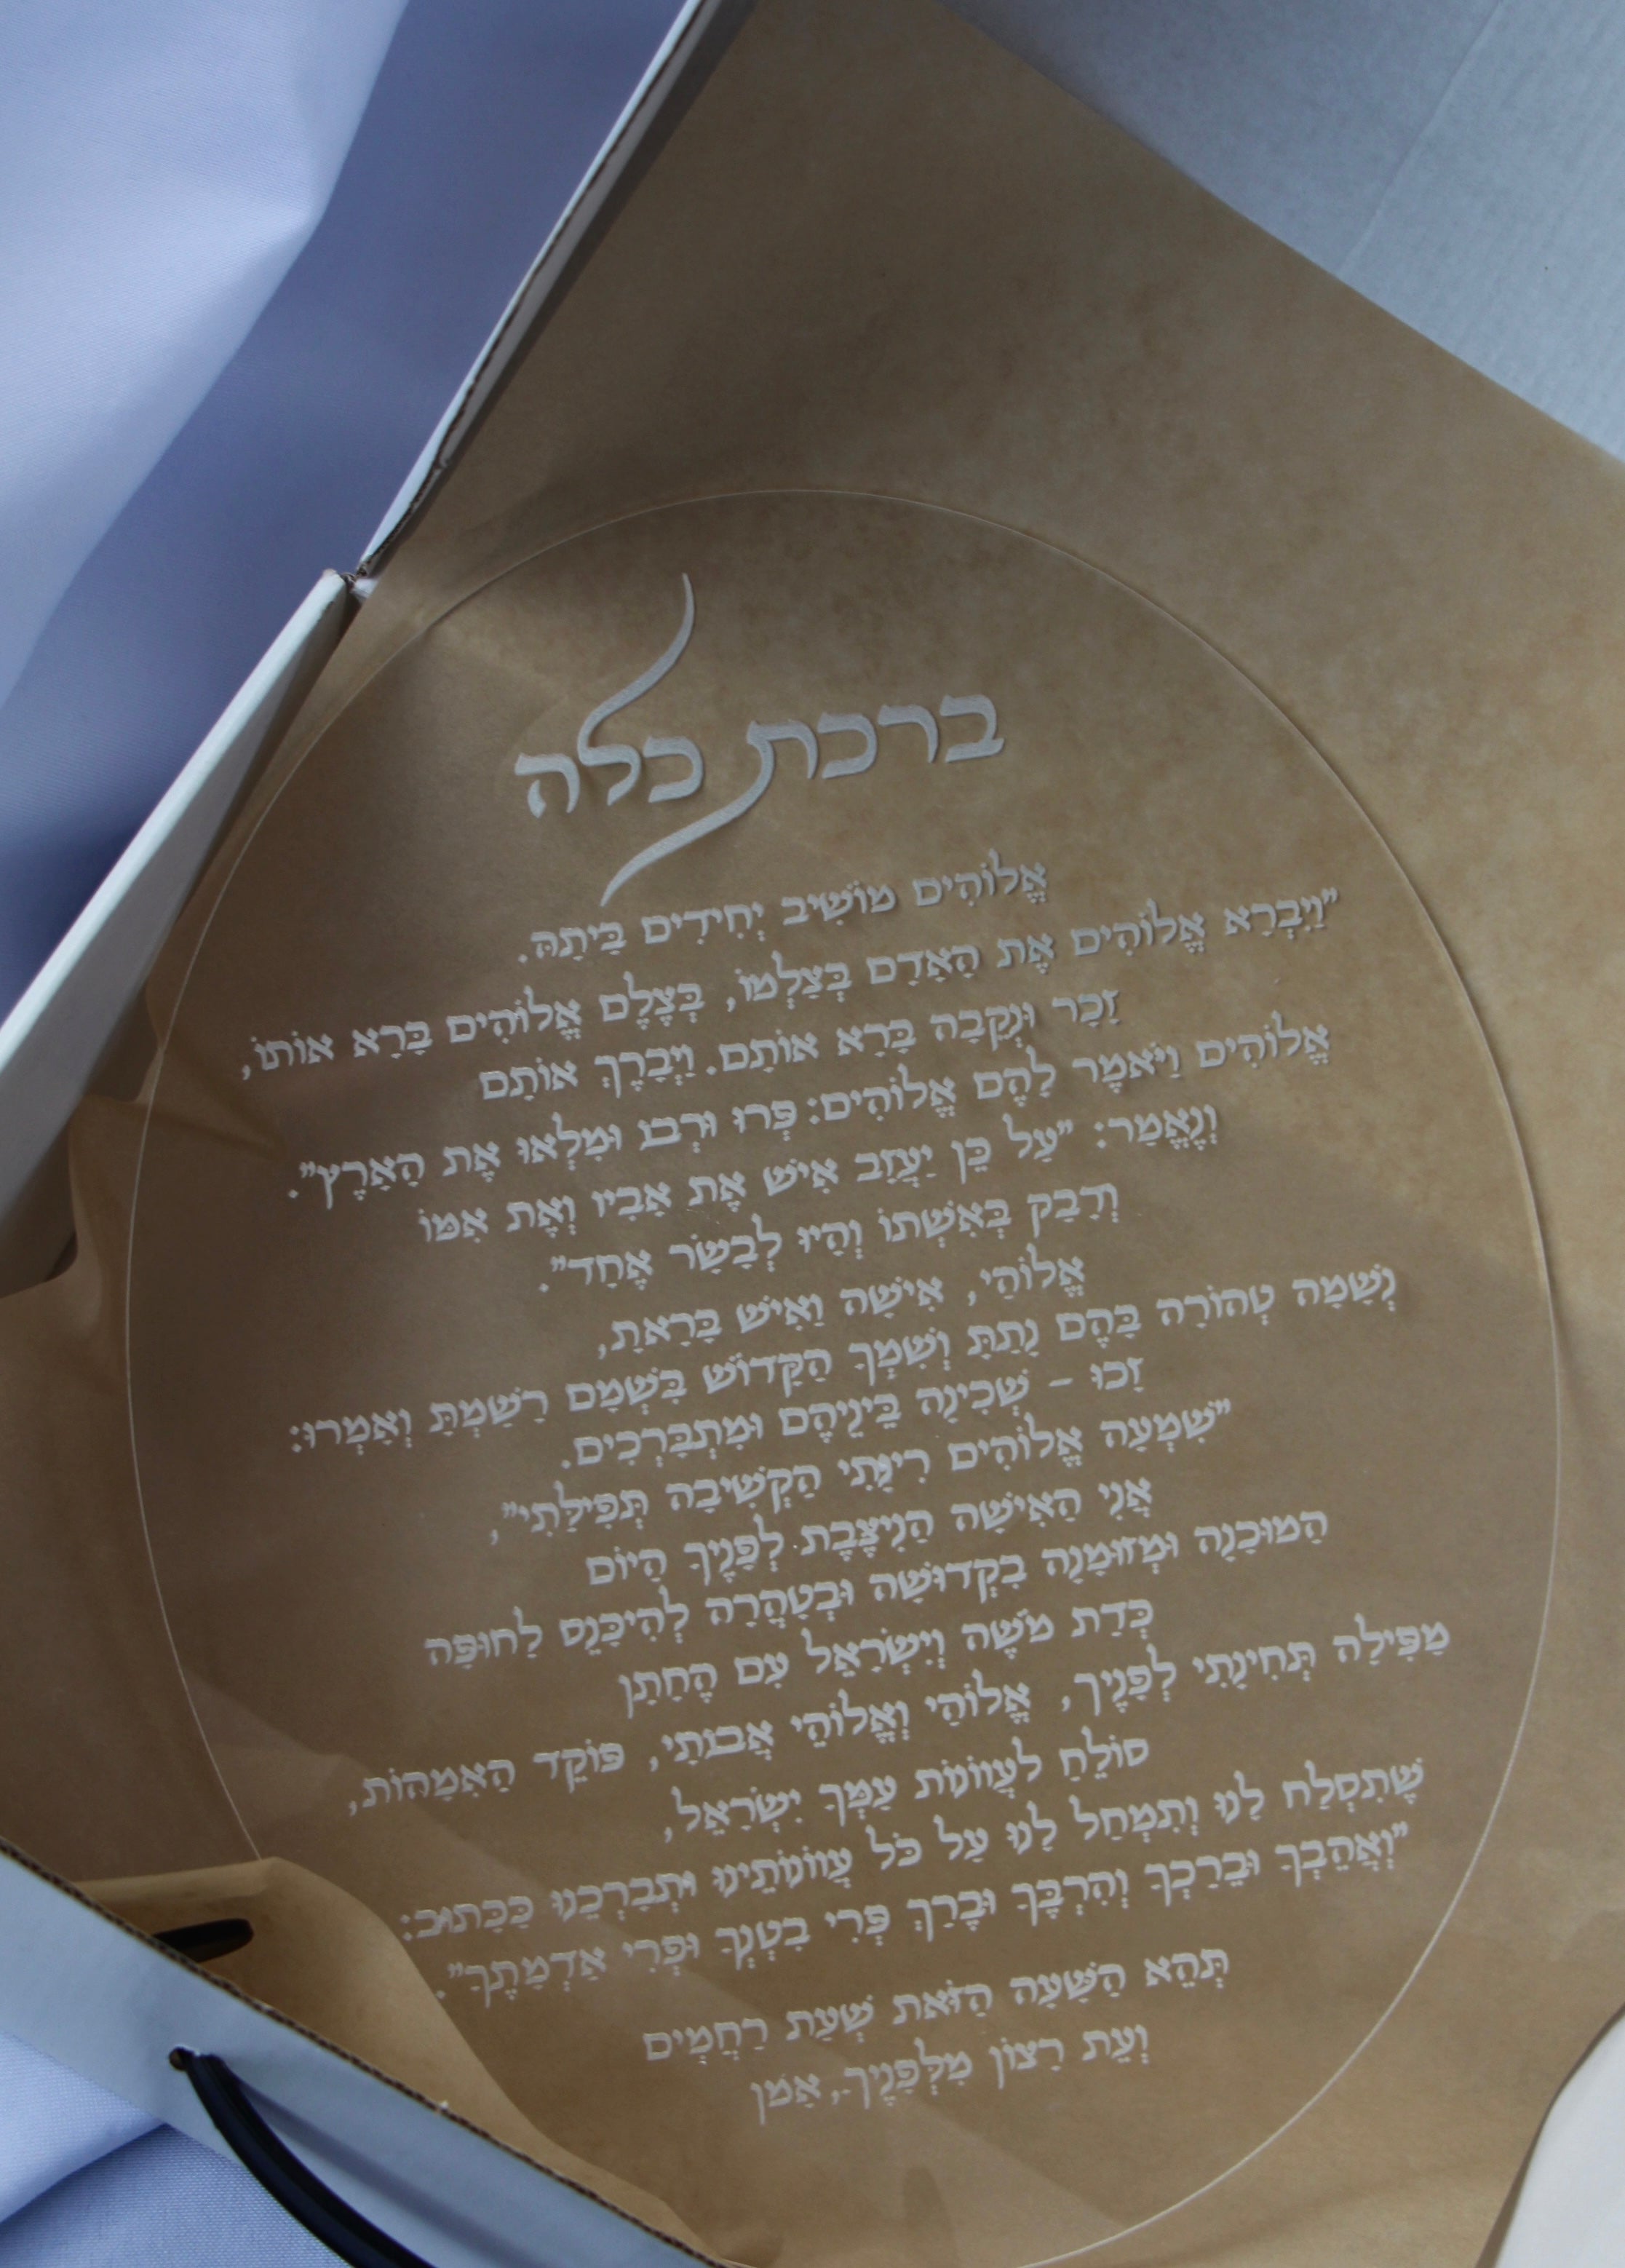 ברכת כלה
אֱלוֹהִים מוֹשִׁיב יְחִידִים בַּיְתָהּ.
"וַיִּבְרָא אֱלוֹהִים אֶת הָאָדָם בְּצַלְמוֹ, בְּצֶלֶם אֱלוֹהִים בָּרָא אוֹתוֹ,
זָכָר וּנְקֵבָה בָּרָא אוֹתָם. וַיְּבָרֶךְ אוֹתָם
אֱלוֹהִים וַיֹּאמֶר לָהֶם אֱלוֹהִים: פְּרוּ וּרְבוּ וּמִלְאוּ אֶת הָאָרֶץ".
וְנֶאֱמַר: "עַל כֵּן יַעֲזַב אִישׁ אֶת אָבִיו וְאֶת אִמּוֹ
וְדָבַק בְּאִשְׁתוֹ וְהָיוּ לְבָשָׂר אֶחָד".
אֱלוֹהַי, אִישָׁה וַאִישׁ בָּרָאתָ,
נְשָׁמָה טְהוֹרָה בָּהֶם נָתַתָּ וְשִׁמְךָ הַקָּדוֹשׁ בִּשְׁמָם רָשַׁמְתָּ וְאָמְרוּ:
זָכוּ – שְׁכִינָה בֵּינֵיהֶם וּמִתְבָּרְכִים.
"שִׁמְעָה אֱלוֹהִים רִינָּתִי הַקְשִׁיבָה תְּפִילָּתִי",
אֲנִי הַאִישָׁה הַנִיצֶּבֶת לְפָּנֶיךָ הַיוֹם
הַמוּכָנָה וּמְזוּמָנָה בִקְדוּשָׁה וּבְטָהֳרָה לְהִיכָּנֵס לַחוּפָּה
כְּדַת מֹשֶׁה וְיִשְׂרָאֵל עִם הֶחָתָן
מַפִּילָה תְּחִינָתִי לְפָּנֶיךָ, אֱלוֹהַי וְאֱלוֹהֵי אֲבוֹתַי, פּוֹקֵד הָאִמָּהוֹת,
סוֹלֵחַ לַעֲווֹנוֹת עַמְּךָ יִשְׂרָאֵל,
שֶׁתִסְלַח לָנוּ וְתִמְחַל לָנוּ עַל כֹּל עֲווֹנוֹתֵינוּ וּתְבָרְכֵנוּ כַּכָּתוּב:
"וְאֲהֵבְךָ וּבֵרַכְךָ וְהִרְבֶּךָ וּבֵרַךְ פְּרִי בִטְנְךָ וּפְרִי אַדְמָתֶךָ".
תְּהֵא הַשָּׁעָה הַזוֹאת שְׁעַת רַחֲמִים
וְעֵת רָצוֹן מִלְּפָּנֶיךָ, אָמֵן